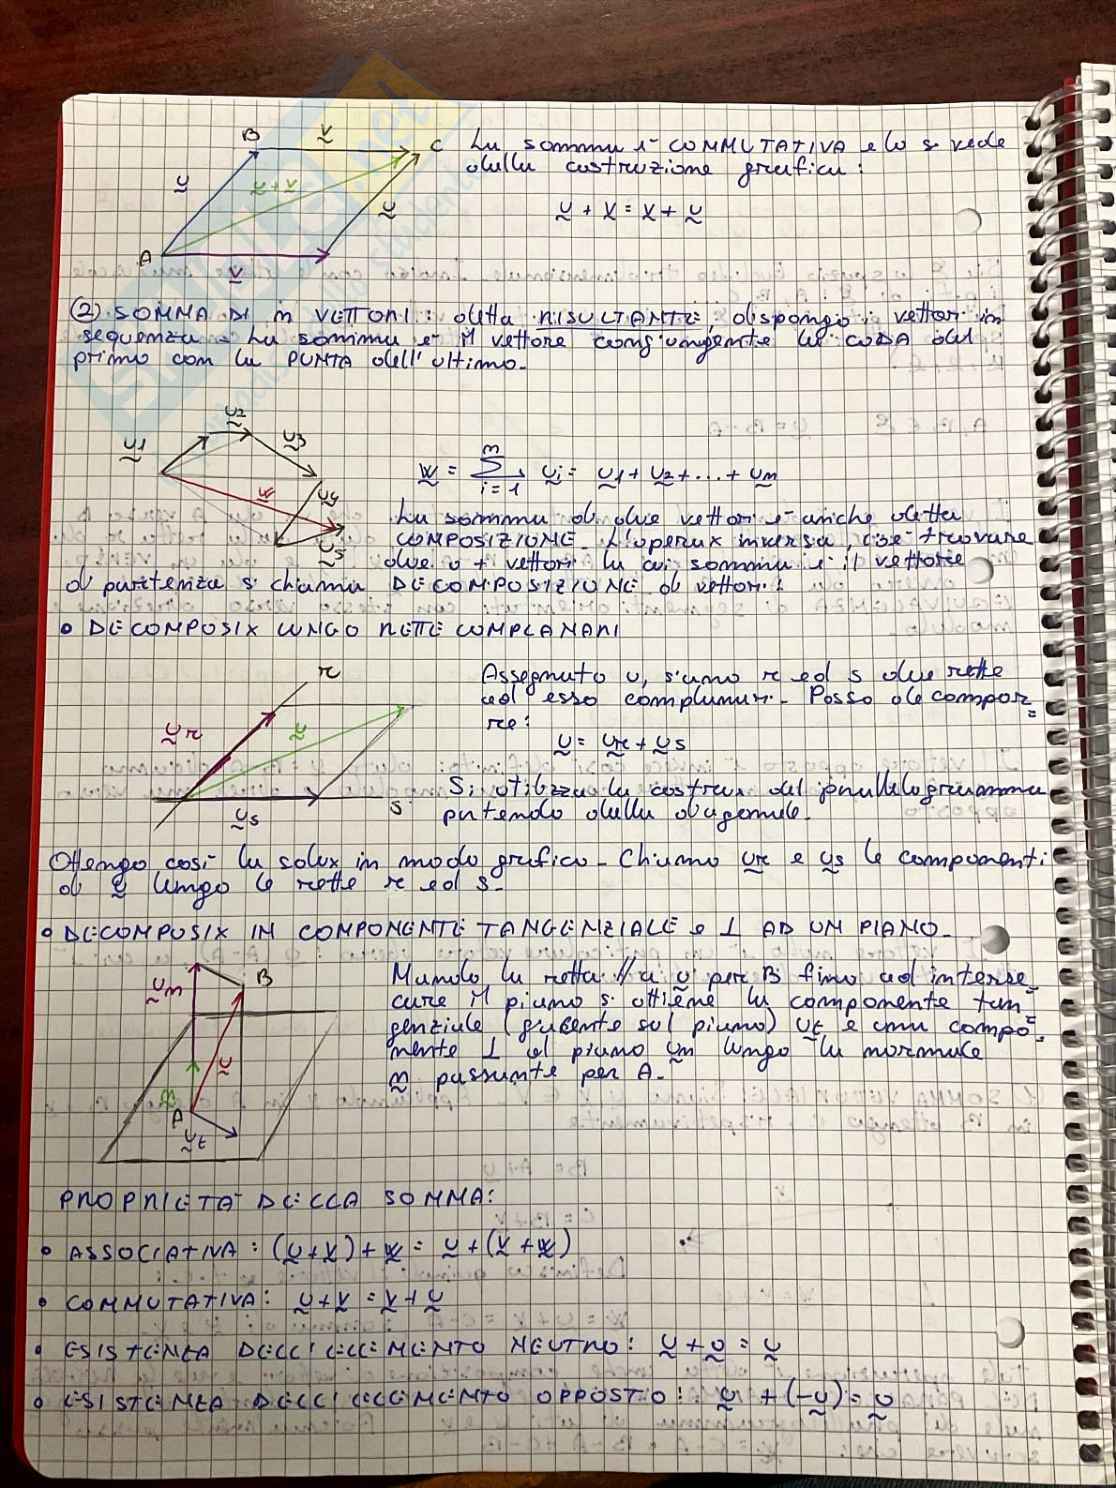 B v C La somma è COMMUTATIVA e lo si vede
dalla costruzione grafica:
u u+v u
u + v = v + u
A v
(2) SOMMA DI n VETTORI: detta RISULTANTE, dispongo i vettori in
sequenza. La somma è il vettore congiungente la CODA del
primo con la PUNTA dell'ultimo.
u1 u2 u3
w u4 u5
w = Σ i=1 n ui = u1 + u2 + ... + un
La somma di due vettori è anche detta
COMPOSIZIONE. L'operaz inversa, cioè trovare
due o + vettori la cui somma è il vettore
di partenza si chiama DECOMPOSIZIONE di vettori:
• DECOMPOSIZ LUNGO RETTE COMPLANARI
r Assegnato u, siano r ed s due rette
ad esso complanari. Posso decompor=
re:
ur u
u = ur + us
us s Si utilizza la costruz del parallelogramma
partendo dalla diagonale.
Ottengo così la soluz in modo grafico. Chiamo ur e us le componenti
di u lungo le rette r ed s.
• DECOMPOSIZ IN COMPONENTE TANGENZIALE e ⊥ AD UN PIANO.
un B Mando la retta // a n per B fino ad interse=
care il piano si ottiene la componente tan=
genziale (giacente sul piano) ut e una compo=
nente ⊥ al piano un lungo la normale
n passante per A.
n u
A
ut
PROPRIETÀ DELLA SOMMA:
• ASSOCIATIVA: (u+v)+w = u+(v+w)
• COMMUTATIVA: u+v = v+u
• ESISTENZA DELL'ELEMENTO NEUTRO: u+0 = u
• ESISTENZA DELL'ELEMENTO OPPOSTO: u + (-u) = 0